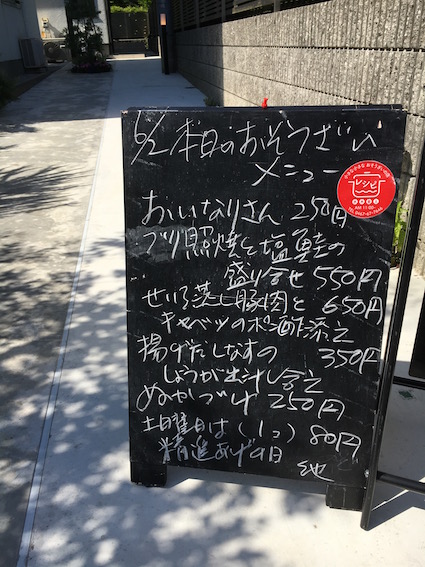 6/2 本日のおそうざい
メニュー
おいなりさん 250円
ブリ照焼と塩鮭の
盛り合せ 550円
せいろ蒸し豚肉と 650円
キャベツのポン酢添え
揚げだしなすの 350円
しょうが出汁し含え
ぬかづけ 250円
土曜日は (1コ) 80円
精進あげの日
他
レシピ
AM 11:00~
TEL 0467-67-7648